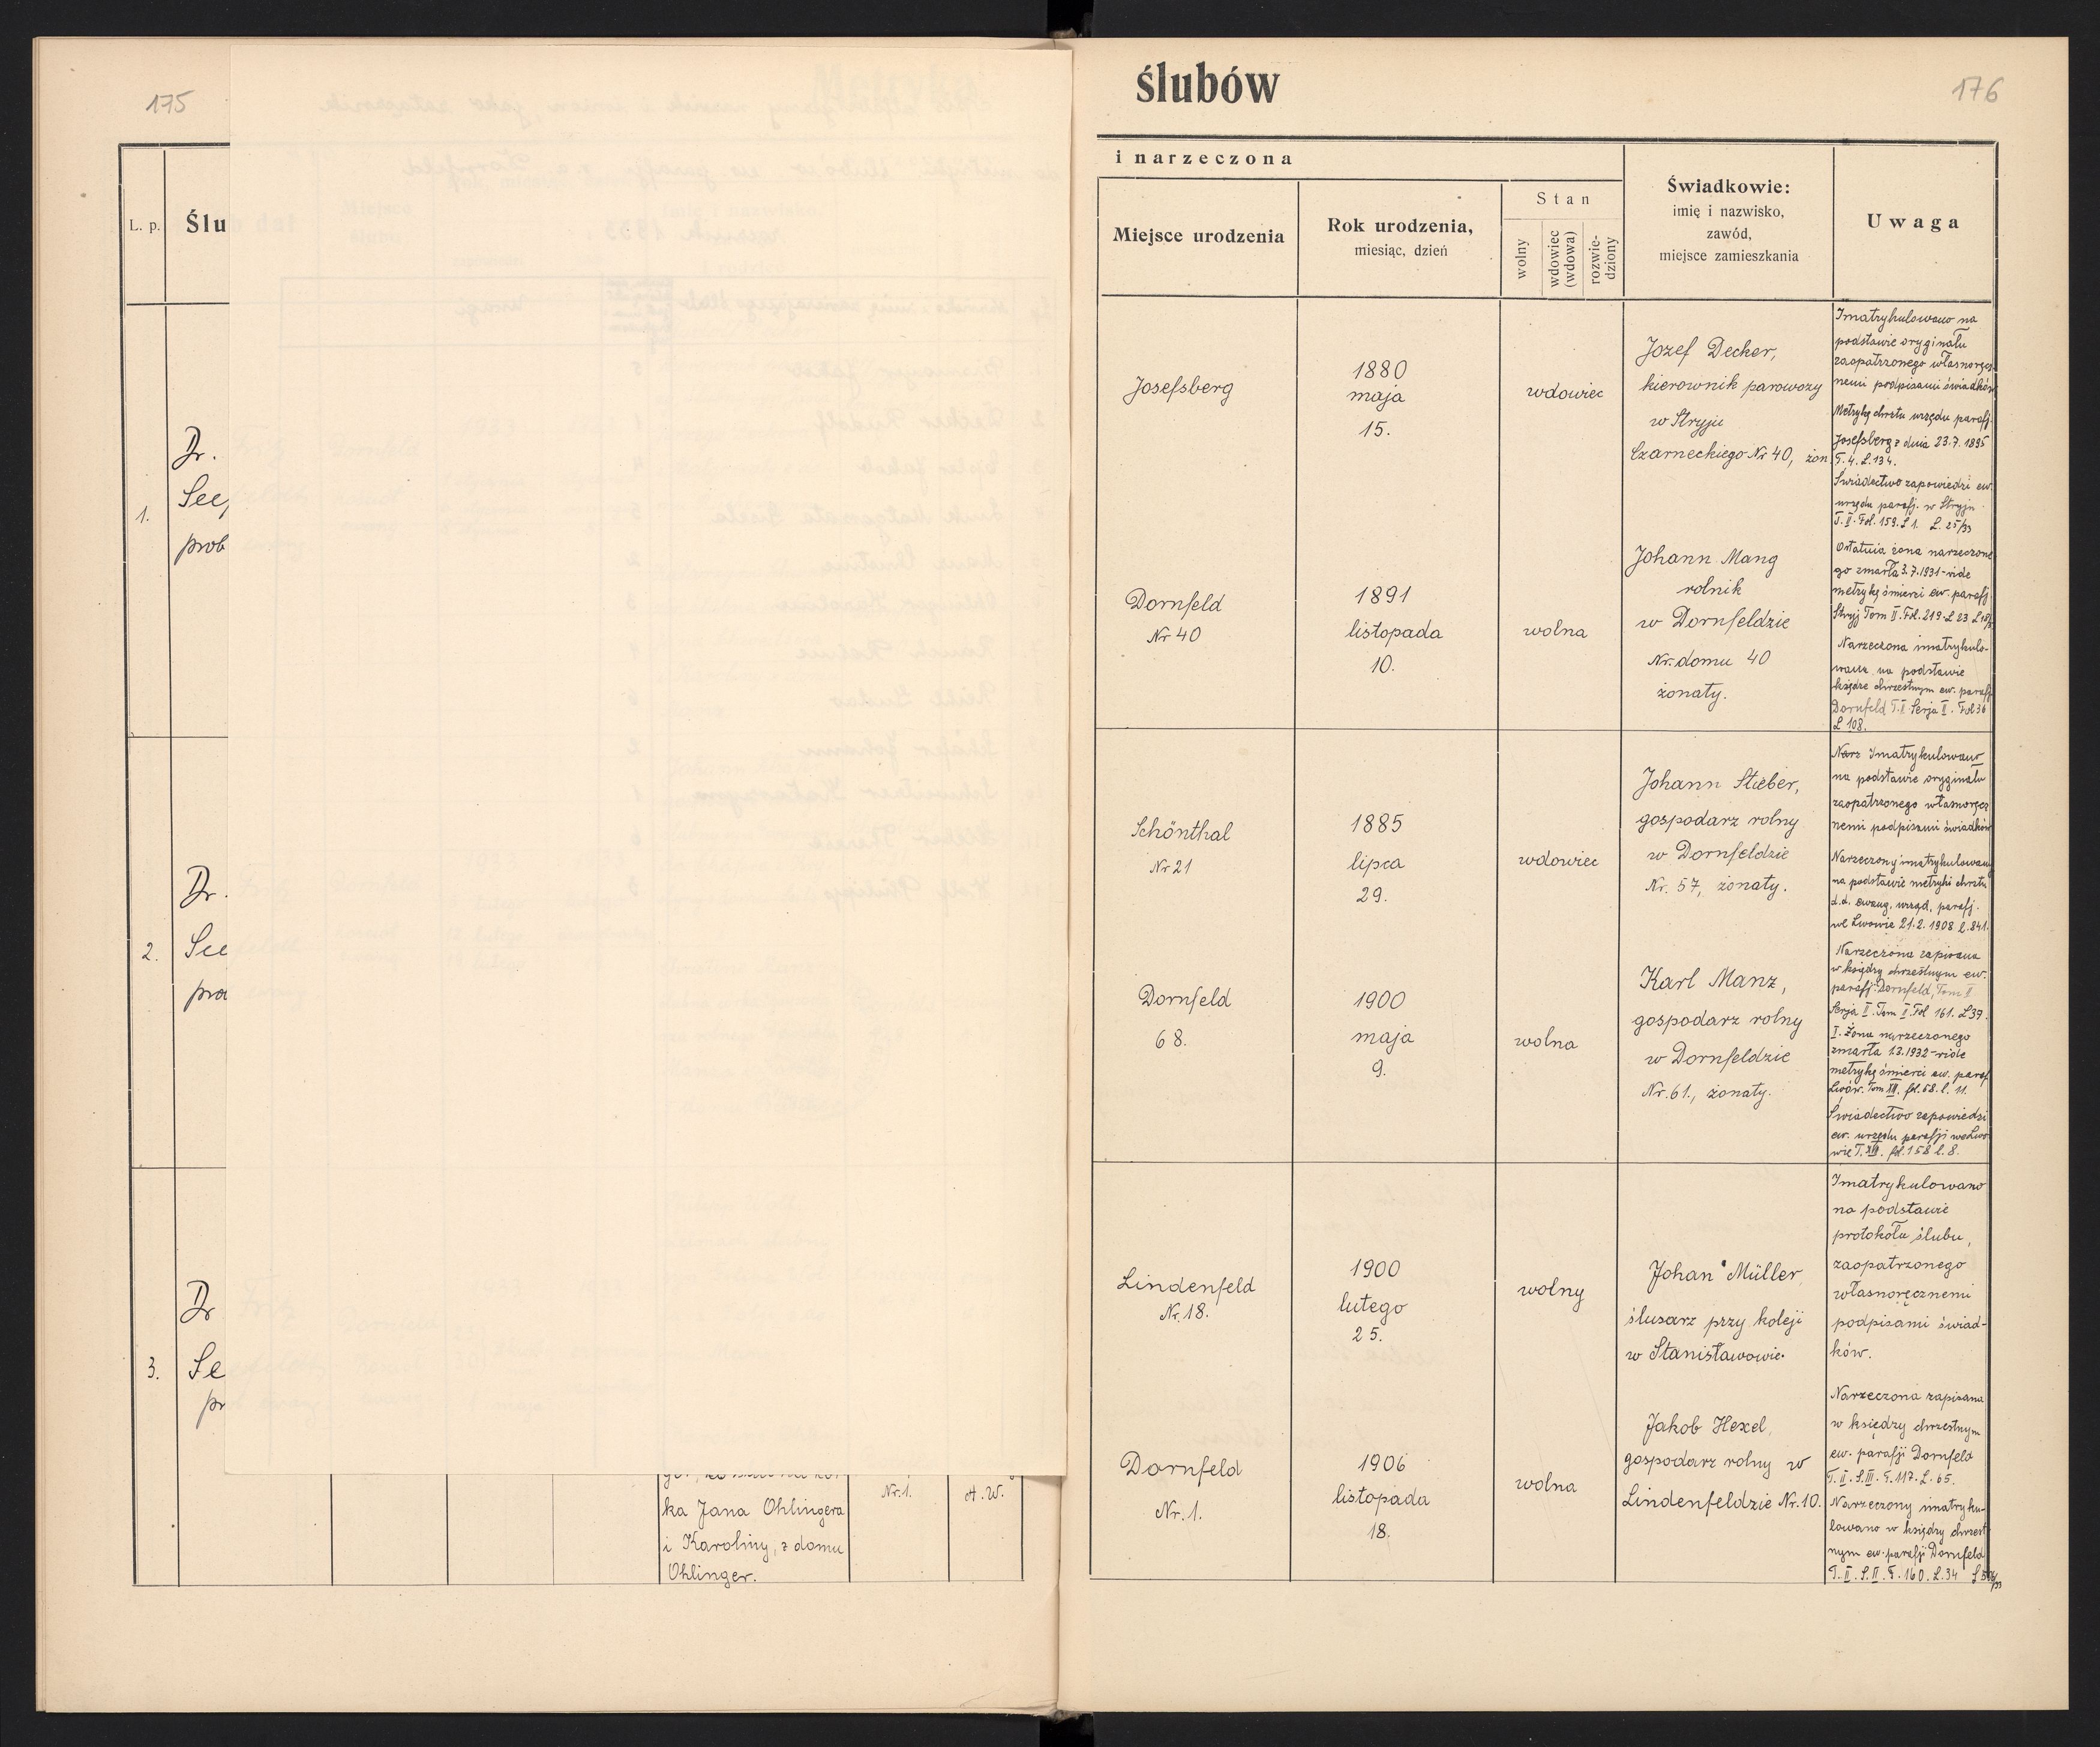 175
L. p.
Ślu
1.
Dr.
See
prob
2.
Dr.
See
pro
3.
Dr
Se
pr
ka Jana Ohlingera
i Karoliny, z domu
Ohlinger.
Nr. 1.
A. W.
ślubów
176
i narzeczona
Miejsce urodzenia
Rok urodzenia,
miesiąc, dzień
Stan
wolny
wdowiec
(wdowa)
rozwie-
dziony
Świadkowie:
imię i nazwisko,
zawód,
miejsce zamieszkania
Uwaga
Josefsberg
1880
maja
15.
wdowiec
Jozef Decker,
kierownik parowozy
w Stryju
Czarneckiego Nr 40, żon
Dornfeld
Nr 40
1891
listopada
10.
wolna
Johann Mang
rolnik
w Dornfeldzie
Nr. domu 40
żonaty.
Imatrykulowano na
podstawie oryginału
zaopatrzonego własnoręcz
nemi podpisami świadków
Metrykę chrztu urzędu parafj.
Josefsberg z dnia 23.7.1895
T. 4. L. 134.
Świadectwo zapowiedzi ew.
urzędu parafj. w Stryju
T. II. Fol. 159. L 1. L. 25/33
Ostatnia żona narzeczone
go zmarła 3.7.1931 - vide
metrykę śmierci ew. parafj.
Stryj Tom II. Fol. 219. L 23
Narzeczona imatrykulo-
wana na podstawie
księdze chrzestnym ew. parafj.
Dornfeld T. II Serja II. Fol 36
L 108.
Schönthal
Nr 21
1885
lipca
29.
wdowiec
Johann Stieber,
gospodarz rolny
w Dornfeldzie
Nr. 57, żonaty.
Dornfeld
68.
1900
maja
9.
wolna
Karl Manz,
gospodarz rolny
w Dornfeldzie
Nr. 61., żonaty.
Narz Imatrykulowano
na podstawie oryginału
zaopatrzonego własnoręcz
nemi podpisami świadków
Narzeczony imatrykulowany
na podstawie metryki chrztu
d.d. ewang. urząd. parafj.
we Lwowie 21.2.1908 l. 841.
Narzeczona zapisana
w księdzy chrzestnym ew.
parafj. Dornfeld, Tom II
Serja II. Tom I. Fol 161. L 39.
I. Żona narzeczonego
zmarła 1.3.1932 - vide
metrykę śmierci ew. paraf.
Lwów. Tom XII. fol. 58. l. 11.
Świadectwo zapowiedzi
ew. urzędu parafji we Lwo
wie T. XII. fol. 158 l. 8.
Lindenfeld
Nr. 18.
1900
lutego
25.
wolny
Johan Müller,
ślusarz przy koleji
w Stanisławowie.
Dornfeld
Nr. 1.
1906
listopada
18.
wolna
Jakob Hexel,
gospodarz rolny w
Lindenfeldzie Nr. 10.
Imatrykulowano
na podstawie
protokołu ślubu,
zaopatrzonego
własnoręcznemi
podpisami świad-
ków.
Narzeczona zapisana
w księdzy chrzestnym
ew. parafji Dornfeld
T. II. S. III. F. 117. L. 65.
Narzeczony imatryku-
lowano w księdzy chrzest
nym ew. parafji Dornfeld
T. II. S. II. F. 160. L. 34